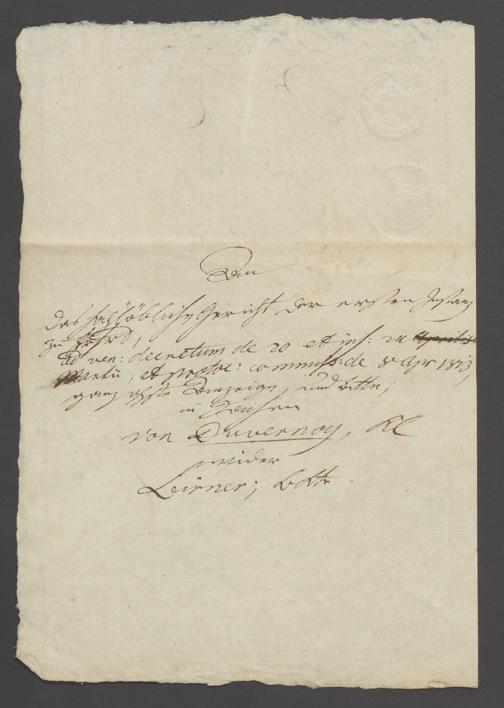 An
das hochlöbliche Gericht der ersten Instanz
zu
ad ven: decretum de 20 et ins: 24 Aprilis
Martii, et protoc: commiss: de 8 Apr 1813
ganz ggste Anzeige, und bitte;
in Sachen
von Duvernoy, Kl
wider
Leirner; bkte.